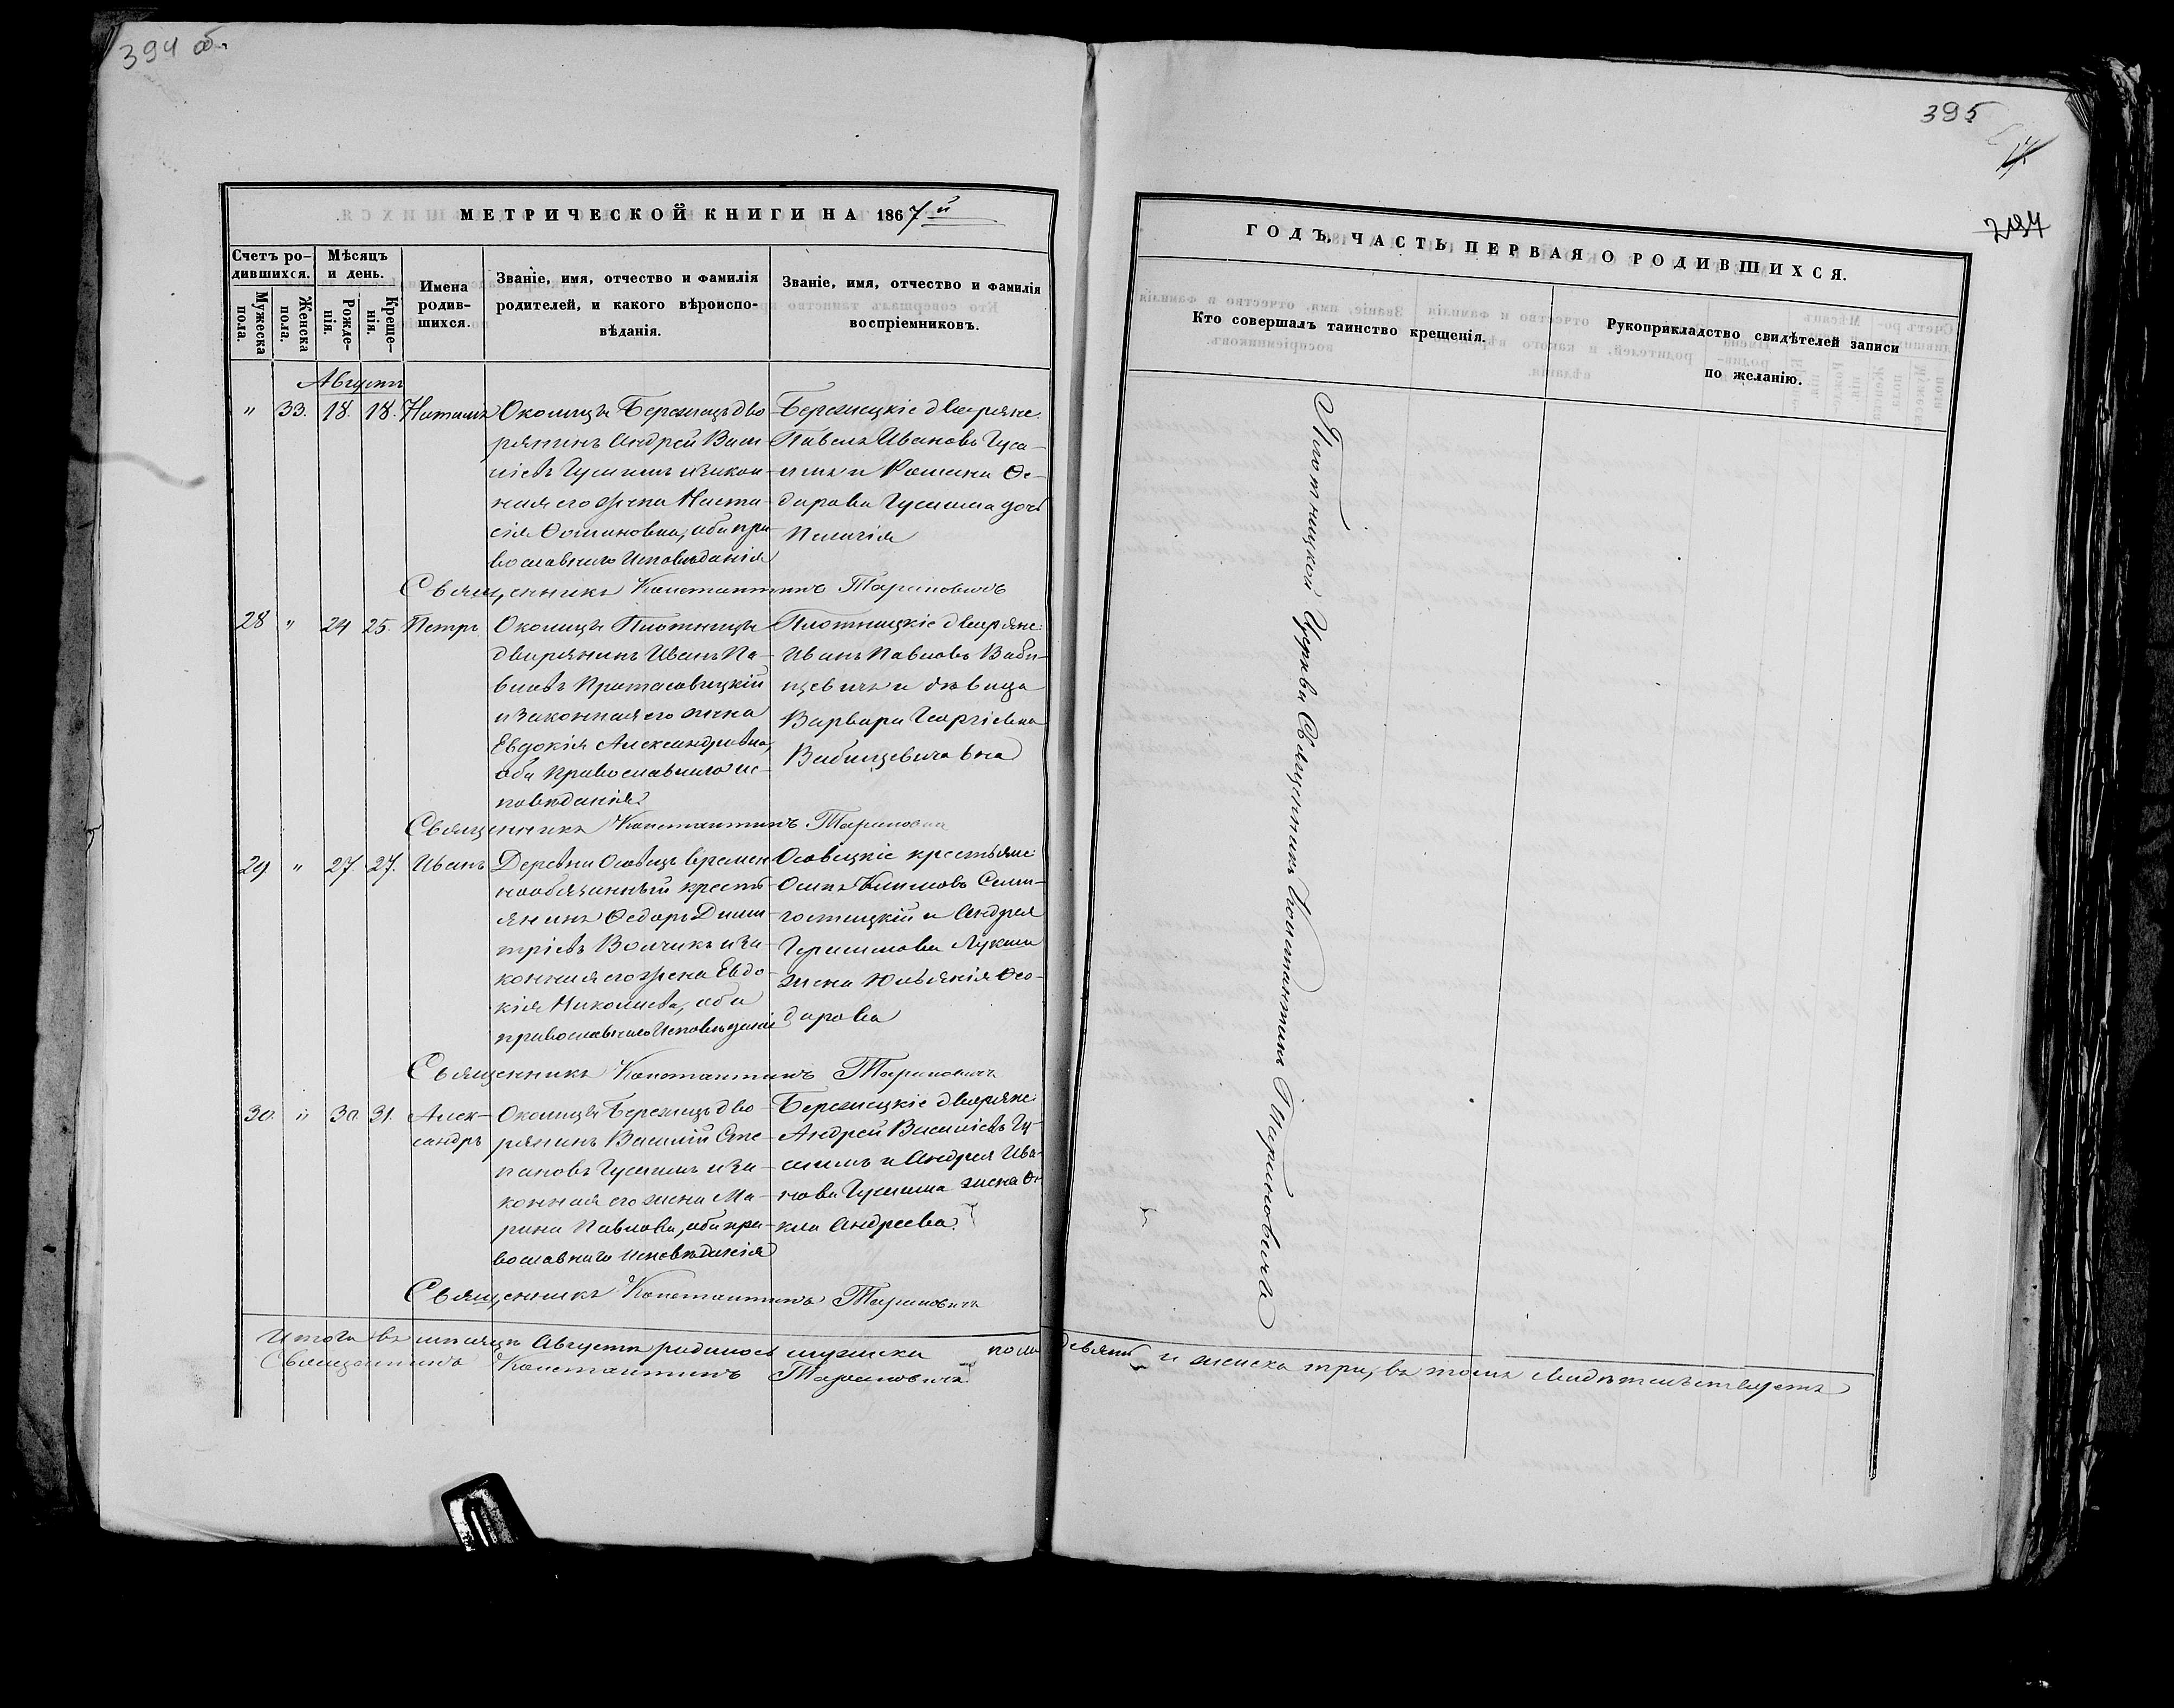 394 об.
МЕТРИЧЕСКОЙ КНИГИ НА 1867й
Счетъ ро-
дившихся.
Мѣсяцъ
и день.
Мужеска
пола.
Женска
пола.
Рожде-
нія.
Креще-
нія.
Имена
родив-
шихся.
Званіе, имя, отчество и фамилія
родителей, и какого вѣроиспо-
вѣданія.
Званіе, имя, отчество и фамилія
воспріемниковъ.
Августъ
" 33. 18. 18. Наталія
Околицы Бережцъ дво
рянинъ Андрей Васи
ліевъ Гусашъ и закон-
ная его жена Наста-
сія Ѳоминовна, оба пра
вославнаго Исповѣданія
Бережецкіе дворяне
Павелъ Ивановъ Гуса-
Ѳе-
дорова Гусаша дочь
Пелагія
Священникъ Константинъ Тариновичъ
28 " 24 25. Петръ
Околицы Плотницы
дворянинъ Иванъ Па-
вловъ Протасовицкій
и законная его жена
Евдокія Александровна,
оба Православнаго ис-
повѣданія
Плотницкіе дворяне
Иванъ Павловъ Ваби-
щевичъ и дѣвица
Варвара Георгіевна
Вабищевичовна
Священникъ Константинъ Тариновичъ
29 " 27 27. Иванъ
Деревни Осовецъ времен
нообязанный кресть
янинъ Ѳедоръ Дими-
тріевъ Волчикъ и за-
конная его жена Евдо-
кія Николаева, оба
православнаго Исповѣданія
Осовецкіе крестьяне
Осипъ Климовъ Сели-
гостицкій и Андрея
Герасимова Лукаша
жена Юльянія Ѳео-
дорова
Священникъ Константинъ Тариновичъ
30. " 30 31. Алек-
сандръ
Околицы Бережцъ дво-
рянинъ Василій Сте-
пановъ Гусашъ и за-
конная его жена Ма-
рина Павлова, оба пра-
вославнаго исповѣданія
Бережецкіе дворяне
Андрей Василіевъ Гу-
сашъ и Андрея Ива-
нова Гусаша жена Ѳе-
кла Андреева.
Священникъ Константинъ Тариновичъ
Итого въ мѣсяцѣ Августѣ родилось мужеска пола девять и женска три, въ томъ свидѣтельствуетъ
Священникъ Константинъ Тариновичъ
395
ГОДЪ, ЧАСТЬ ПЕРВАЯ О РОДИВШИХСЯ.
Кто совершалъ таинство крещенія.
Рукоприкладство свидѣтелей записи
по желанію.
Плотницкой Церкви Священникъ Константинъ Тариновичъ